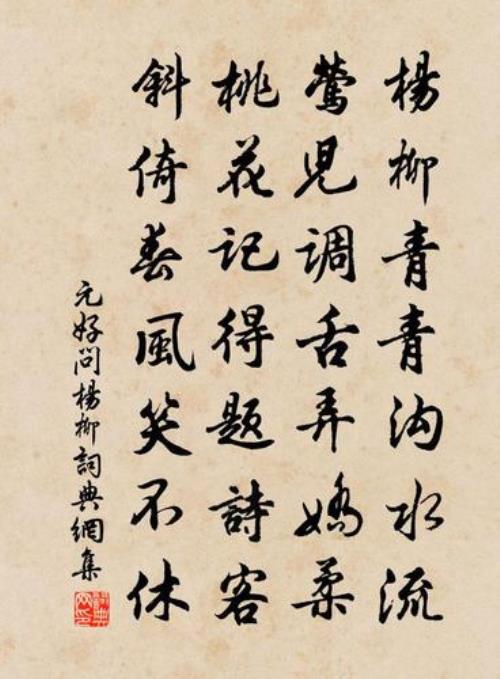 楊柳青青沟水流
莺児调舌弄嬌柔
桃花记得题詩客
斜倚春風笑不休
元好问楊柳詞典網集